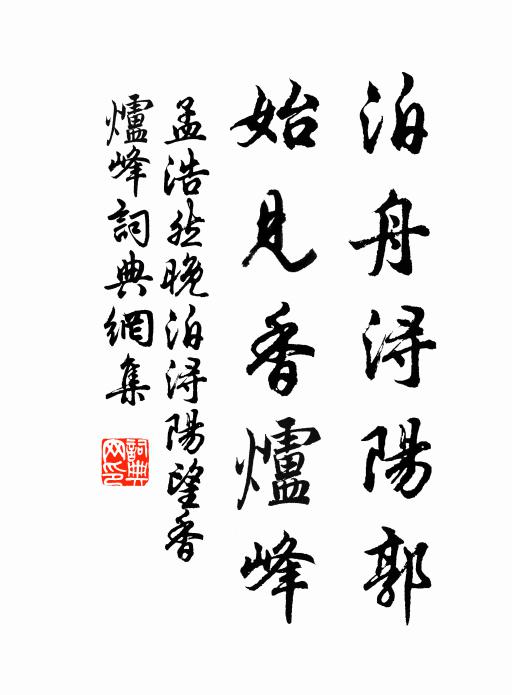 泊舟浔陽郭
始見香爐峰
孟浩然晚泊浔陽望香
爐峰詞典網集
詞典
网印